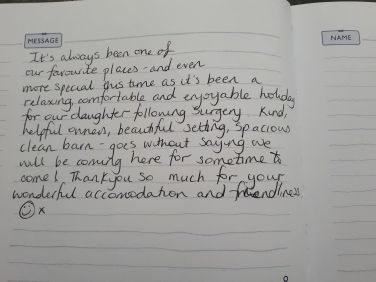 MESSAGE
NAME
It's always been one of
our favourite places - and even
more special this time as it's been a
relaxing, comfortable and enjoyable holiday
for our daughter following surgery. Kind,
helpful owners, beautiful setting, spacious
clean barn - goes without saying we
will be coming here for sometime to
come! Thankyou so much for your
wonderful accomodation and friendliness.
☺ x